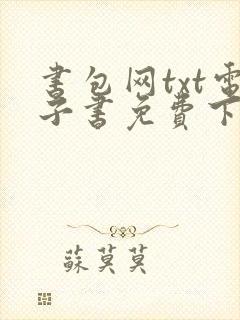 书包网txt电
子书免费下
蘇莫莫